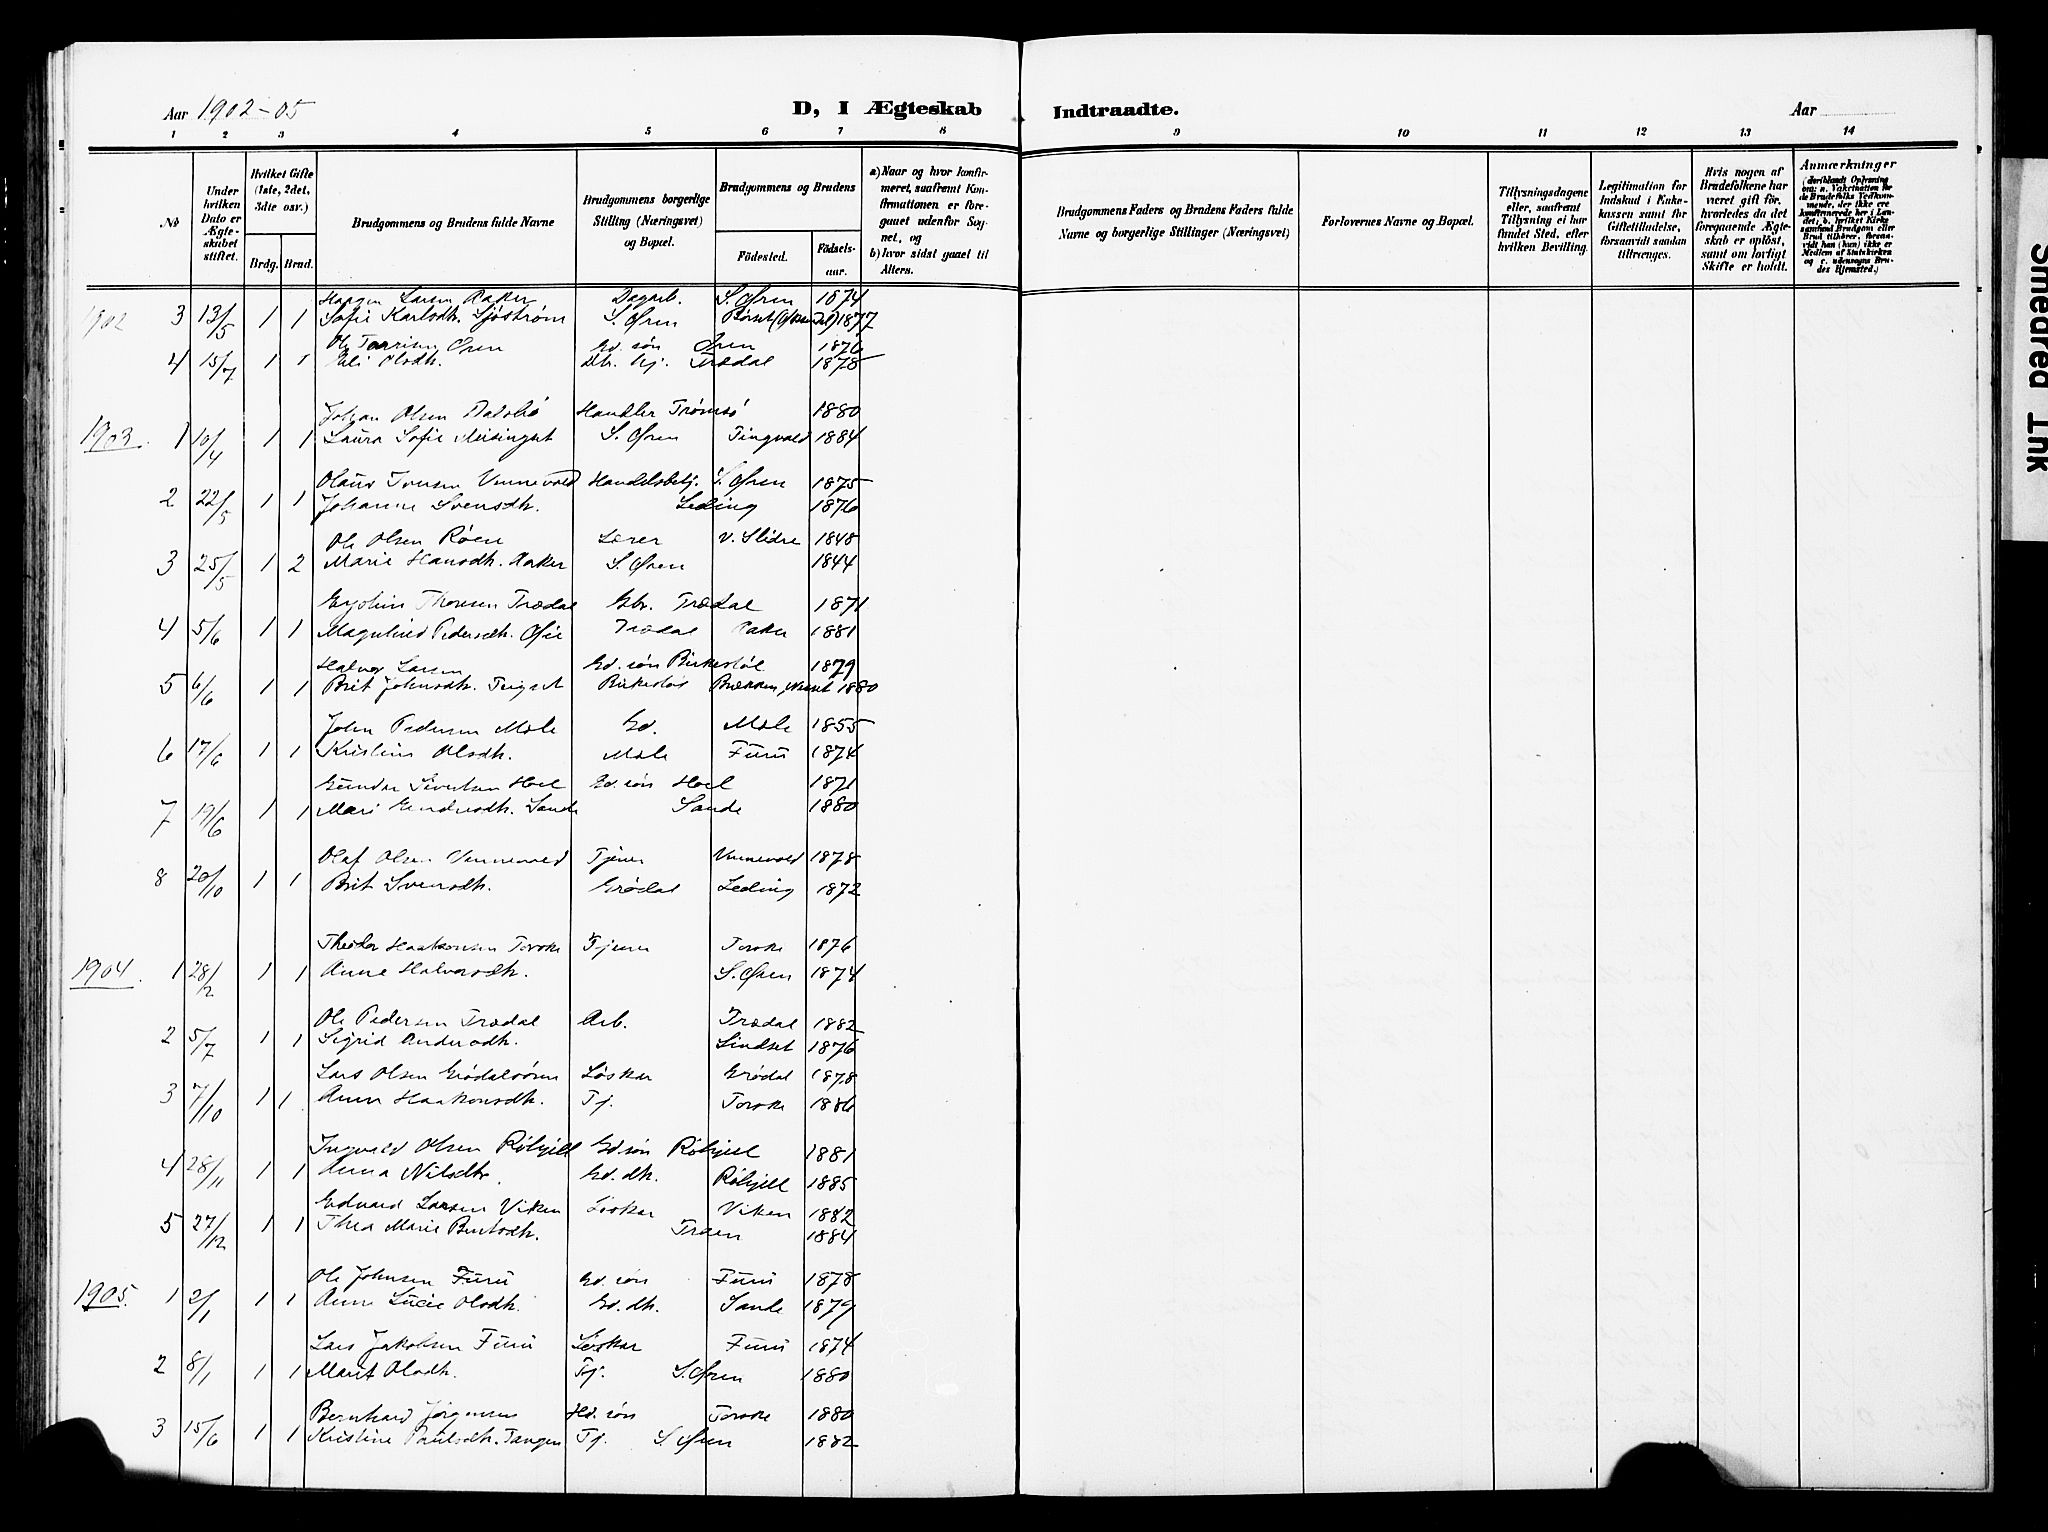 Aar 1902-05
D, I Ægteskab Indtraadte.
Aar
1 2 3 4 5 6 7 8 9 10 11 12 13 14
No
Under hvilken Dato er Ægteskabet stiftet.
Hvilket Gifte (1ste, 2det, 3dte osv.)
Brdg. Brud.
Brudgommens og Brudens fulde Navne
Brudgommens borgerlige Stilling (Næringsvei) og Bopæl.
Brudgommens og Brudens
Födested. Födselsaar.
a) Naar og hvor konfirmeret, saafremt Konfirmationen er foregaaet udenfor Sognet, og
b) hvor sidst gaaet til Alters.
Brudgommens Faders og Brudens Faders fulde Navne og borgerlige Stillinger (Næringsvei)
Forlovernes Navne og Bopæl.
Tillysningsdagene eller, saafremt Tillysning ei har fundet Sted, efter hvilken Bevilling.
Legitimation for Indskud i Enkekassen samt for Giftetilladelse, forsaavidt saadan tiltrænges.
Hvis nogen af Brudefolkene har været gift för, hvorledes da det foregaaende Ægteskab er oplöst, samt om lovligt Skifte er holdt.
Anmærkninger
Smeared Ink
Larsen Aaker Dagarb. S. Øren 1874
1902 3 13/5 1 1 Sofie Karlsdh. Sjøström S. Øren 1877
Ole Øren Gd. søn Øren 1876
4 15/7 1 1 Olsdh. Trædal 1878
Johan Olsen Handler Tromsø 1880
1903. 1 10/4 1 1 Laura Sofie Meisingset S. Øren Tingvold 1884
Olaus Iversen Vinnevold Handelsbetj. S. Øren 1875
2 22/5 1 1 Johanne Svensdh. Leding 1876
Ole Olsen Røen Lærer V. Slidre 1848
3 25/5 1 2 Marie Hansdh. Aaker S. Øren 1844
Thoresen Trædal Gbr. Trædal 1871
4 5/6 1 1 Magnhild Pedersdh. Trædal Aaker 1881
Halvor Larsen Gd. søn Birkestøl 1879
5 6/6 1 1 Brit Johnsdh. Birkestøl 1880
John Pedersen Mæle Gd. Mæle 1855
6 17/6 1 1 Kristine Olsdh. Mæle Furu 1874
Gunder Sivertsen Hoel Gd. søn Hoel 1871
7 19/6 1 1 Mari Gundersdh. Sande Sande 1880
Olaf Olsen Vinnevold Tjener Vinnevold 1878
8 20/10 1 1 Brit Svensdh. Grødal Leding 1872
Theodor Haakonsen Torske Tjener Torske 1876
1904. 1 28/2 1 1 Anne Halvorsdh. S. Øren 1874
Ole Pedersen Trædal Arb. Trædal 1882
2 5/7 1 1 Sigrid Andersdh. Lindset 1876
Lars Olsen Grødalsøren Løskar Grødal 1878
3 7/10 1 1 Anne Haakonsdh. Tj. Torske 1886
Ingvald Olsen Røkjell Gd søn Røkjell 1881
4 28/11 1 1 Anna Nilsdtr. Gd. dh. Røkjell 1885
Edvard Larsen Viken Løskar Viken 1882
5 27/12 1 1 Thea Marie Berntsdh. Træen 1884
Ole Johnsen Furu Gd. søn Furu 1878
1905. 1 2/1 1 1 Anne Lucie Olsdh. Gd. dh. Sande 1879
Lars Jakobsen Furu Løskar Furu 1874
2 8/1 1 1 Marit Olsdh. Tj. S. Øren 1880
Bernhard Jørgensen Hd. søn Torske 1880
3 15/6 1 1 Kristine Paulsdh. Tangen Tj. S. Øren 1882